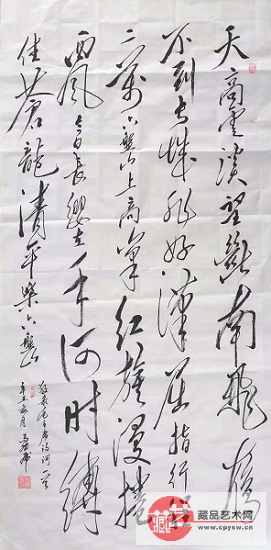 天高云淡望断南飞雁
不到长城非好汉屈指行程
二万六盘山上高峰红旗漫捲
西风今日长缨在手何时缚
住苍龙清平乐六盘山
毛主席词一首
辛丑
藏品艺术网
www.cpysw.cn